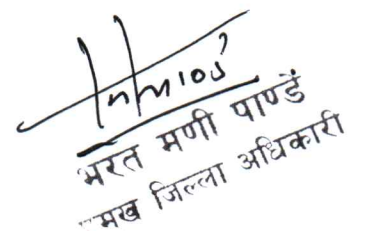 भरत मणी पाण्डें
मख जिल्ला अधिकारी